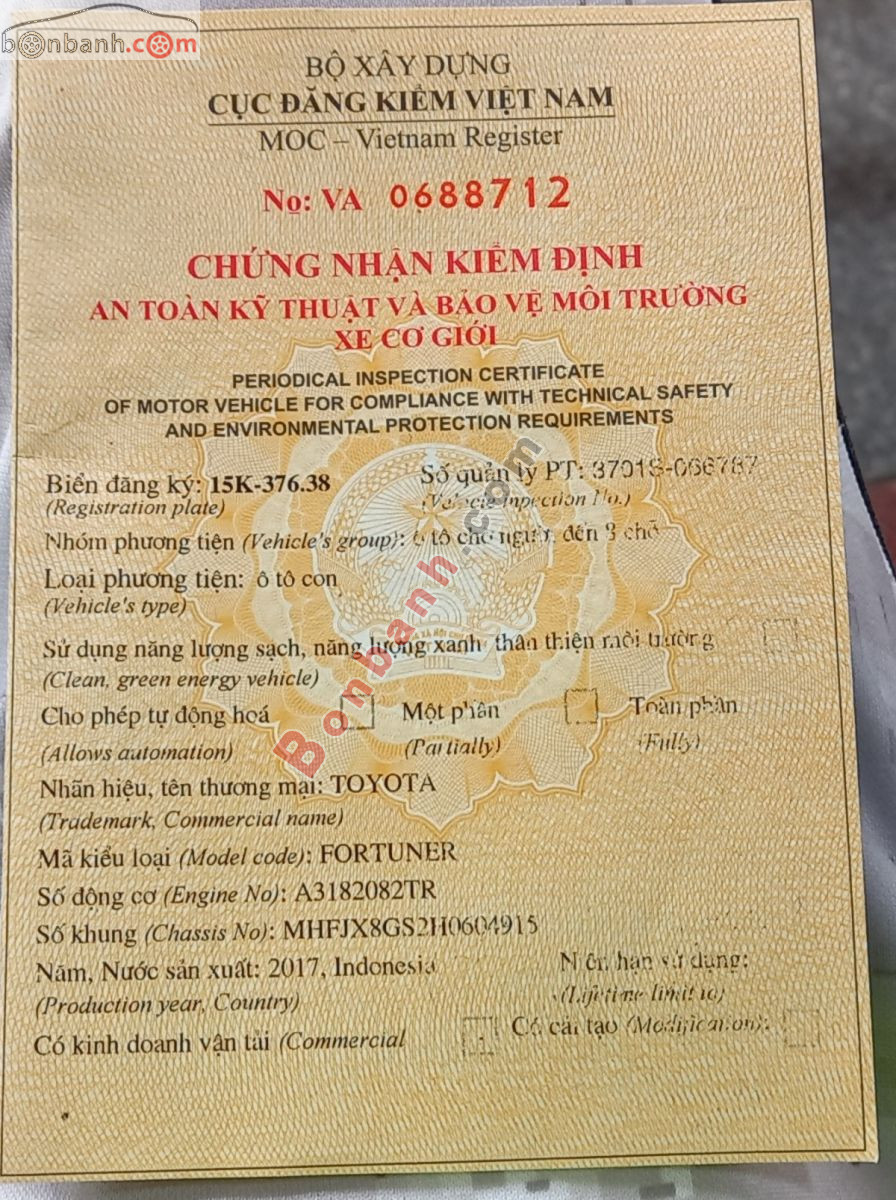 bonbanh.com
BỘ XÂY DỰNG
CỤC ĐĂNG KIỂM VIỆT NAM
MOC – Vietnam Register
No: VA 0688712
CHỨNG NHẬN KIỂM ĐỊNH
AN TOÀN KỸ THUẬT VÀ BẢO VỆ MÔI TRƯỜNG
XE CƠ GIỚI
PERIODICAL INSPECTION CERTIFICATE
OF MOTOR VEHICLE FOR COMPLIANCE WITH TECHNICAL SAFETY
AND ENVIRONMENTAL PROTECTION REQUIREMENTS
Biển đăng ký: 15K-376.38 Số quản lý PT: 3701S-066787
(Registration plate) (Vehicle inpection No.)
Nhóm phương tiện (Vehicle's group): ô tô chở người đến 8 chỗ
Loại phương tiện: ô tô con
(Vehicle's type)
Sử dụng năng lượng sạch, năng lượng xanh, thân thiện môi trường
(Clean, green energy vehicle)
Cho phép tự động hoá Một phần Toàn phần
(Allows automation) (Partially) (Fully)
Nhãn hiệu, tên thương mại: TOYOTA
(Trademark, Commercial name)
Mã kiểu loại (Model code): FORTUNER
Số động cơ (Engine No): A3182082TR
Số khung (Chassis No): MHFJX8GS2H0604915
Năm, Nước sản xuất: 2017, Indonesia Niên hạn sử dụng:
(Production year, Country) (Lifetime limit to)
Có kinh doanh vận tải (Commercial Có cải tạo (Modification):
Bonbanh.com